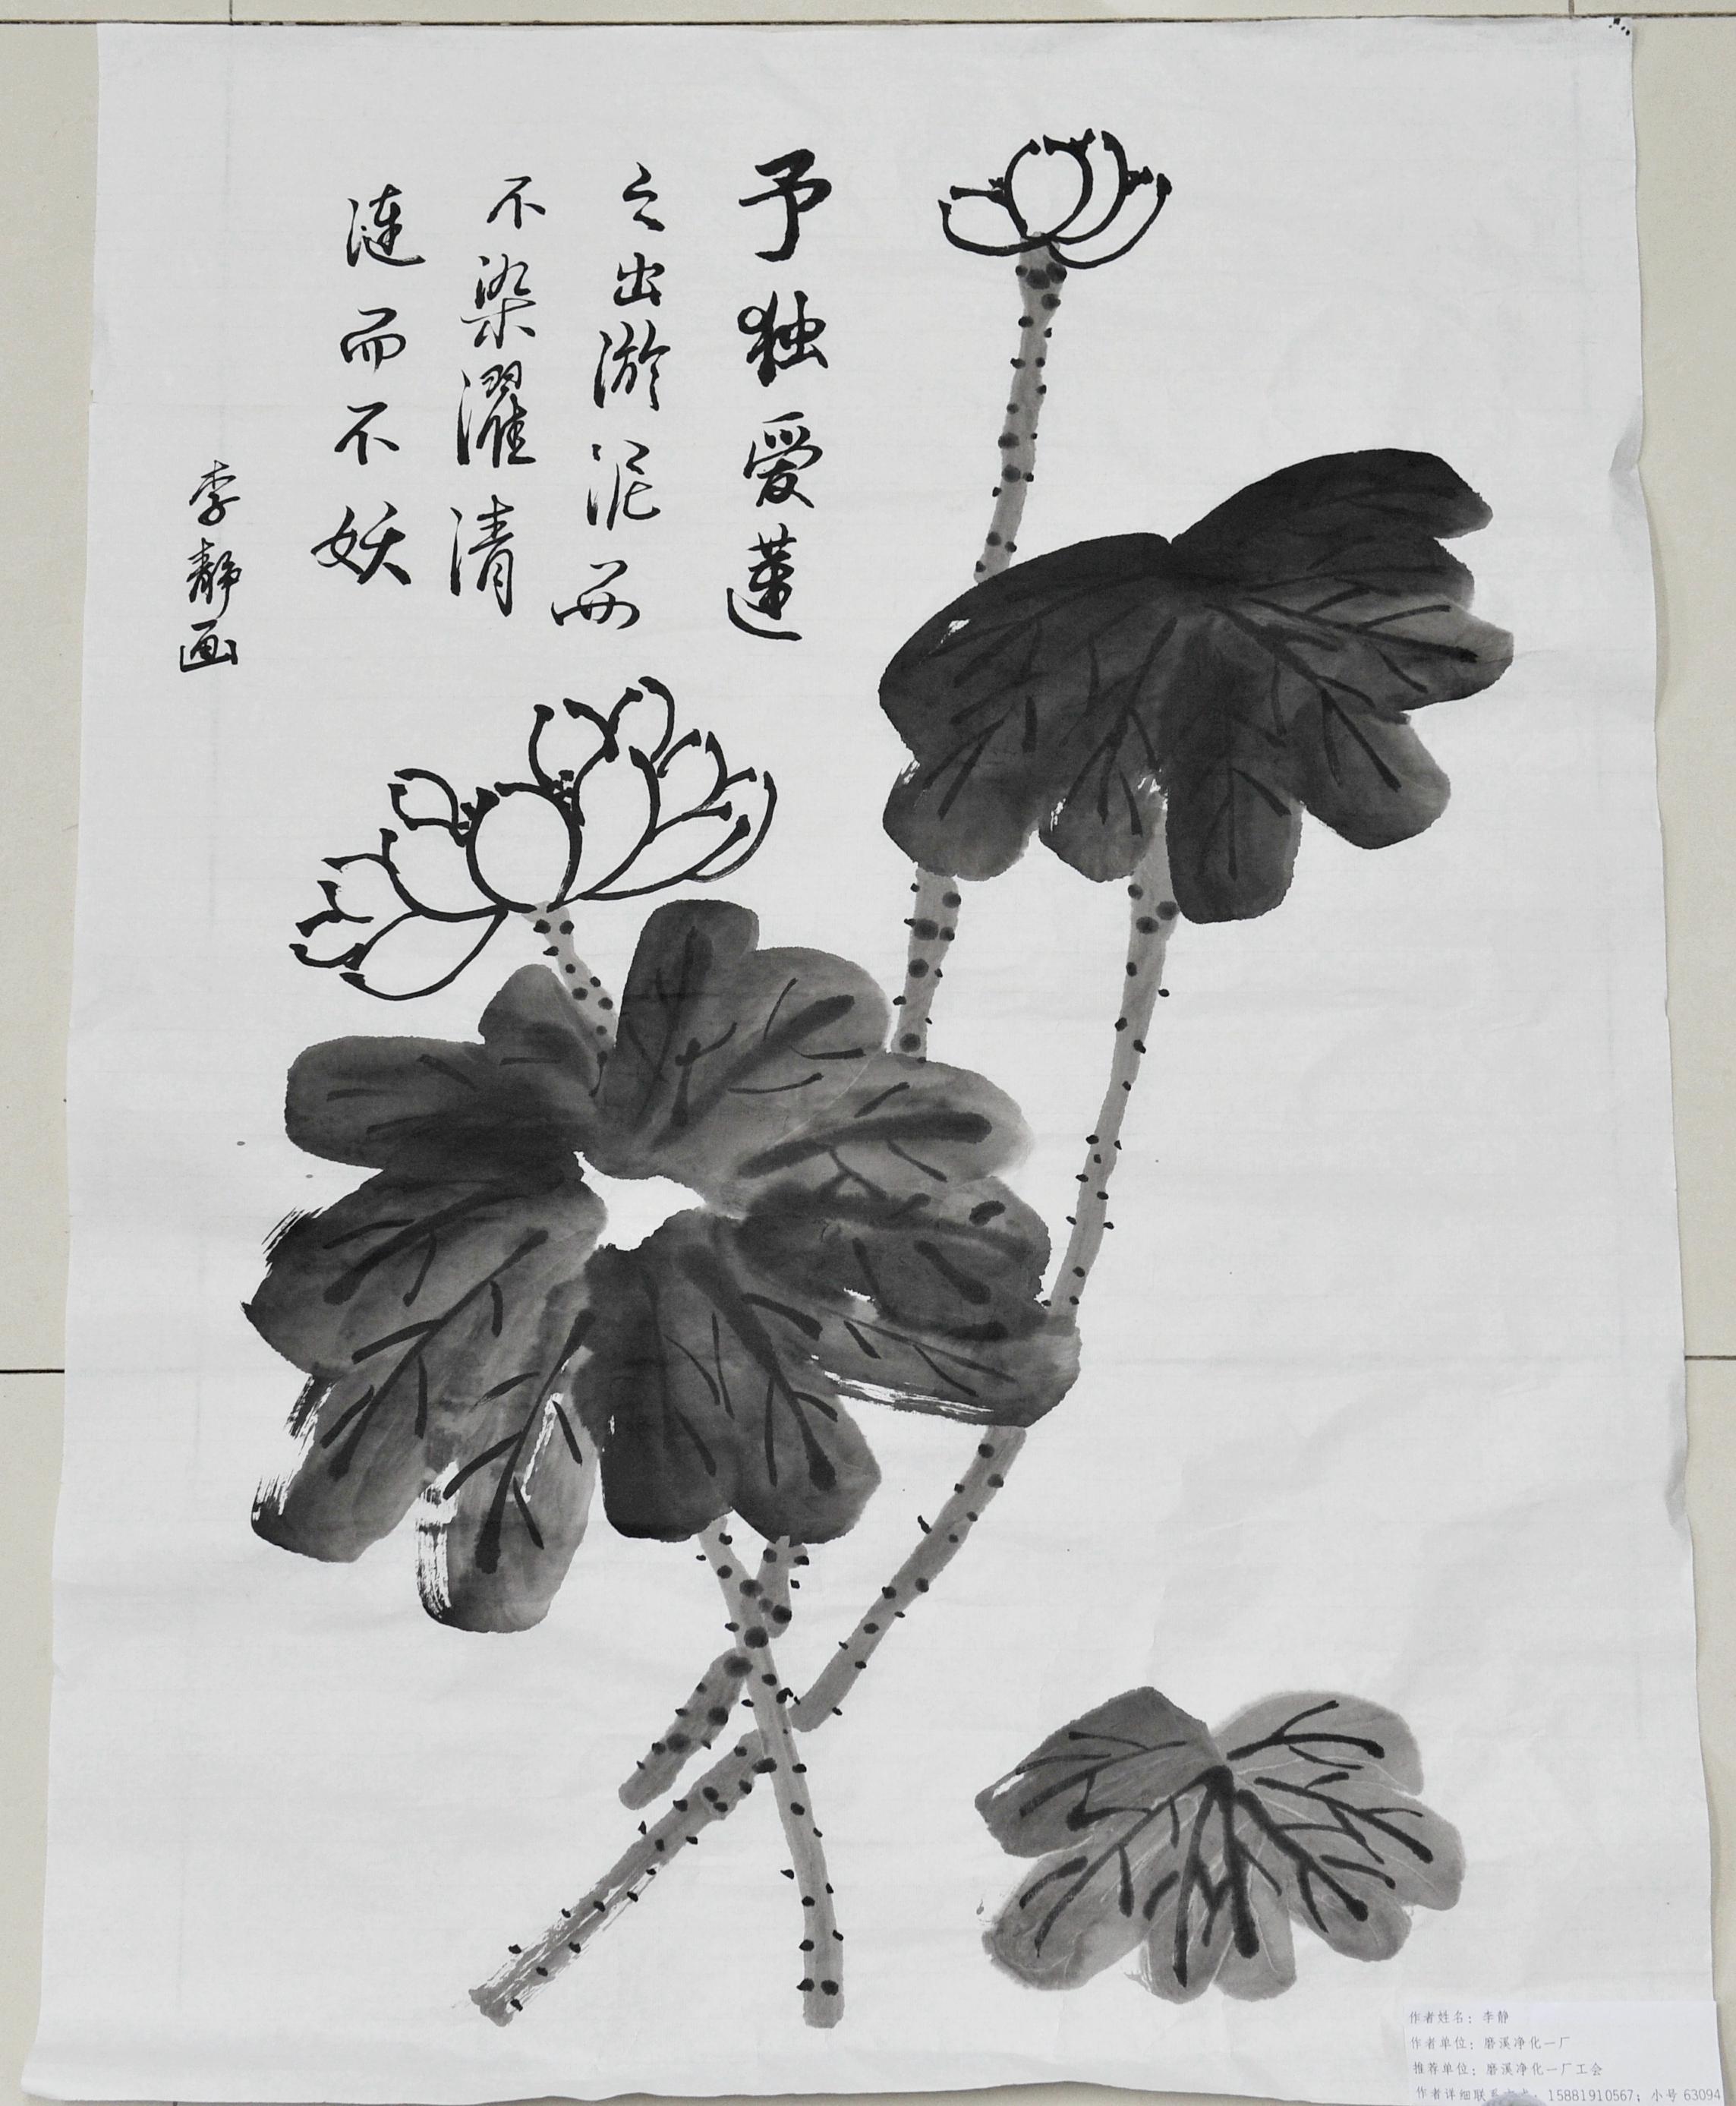 予独爱莲
之出淤泥而
不染濯清
涟而不妖
李静画
作者姓名：李静
作者单位：磨溪净化一厂
推荐单位：磨溪净化一厂工会
作者详细联系：15881910567；小号 63094